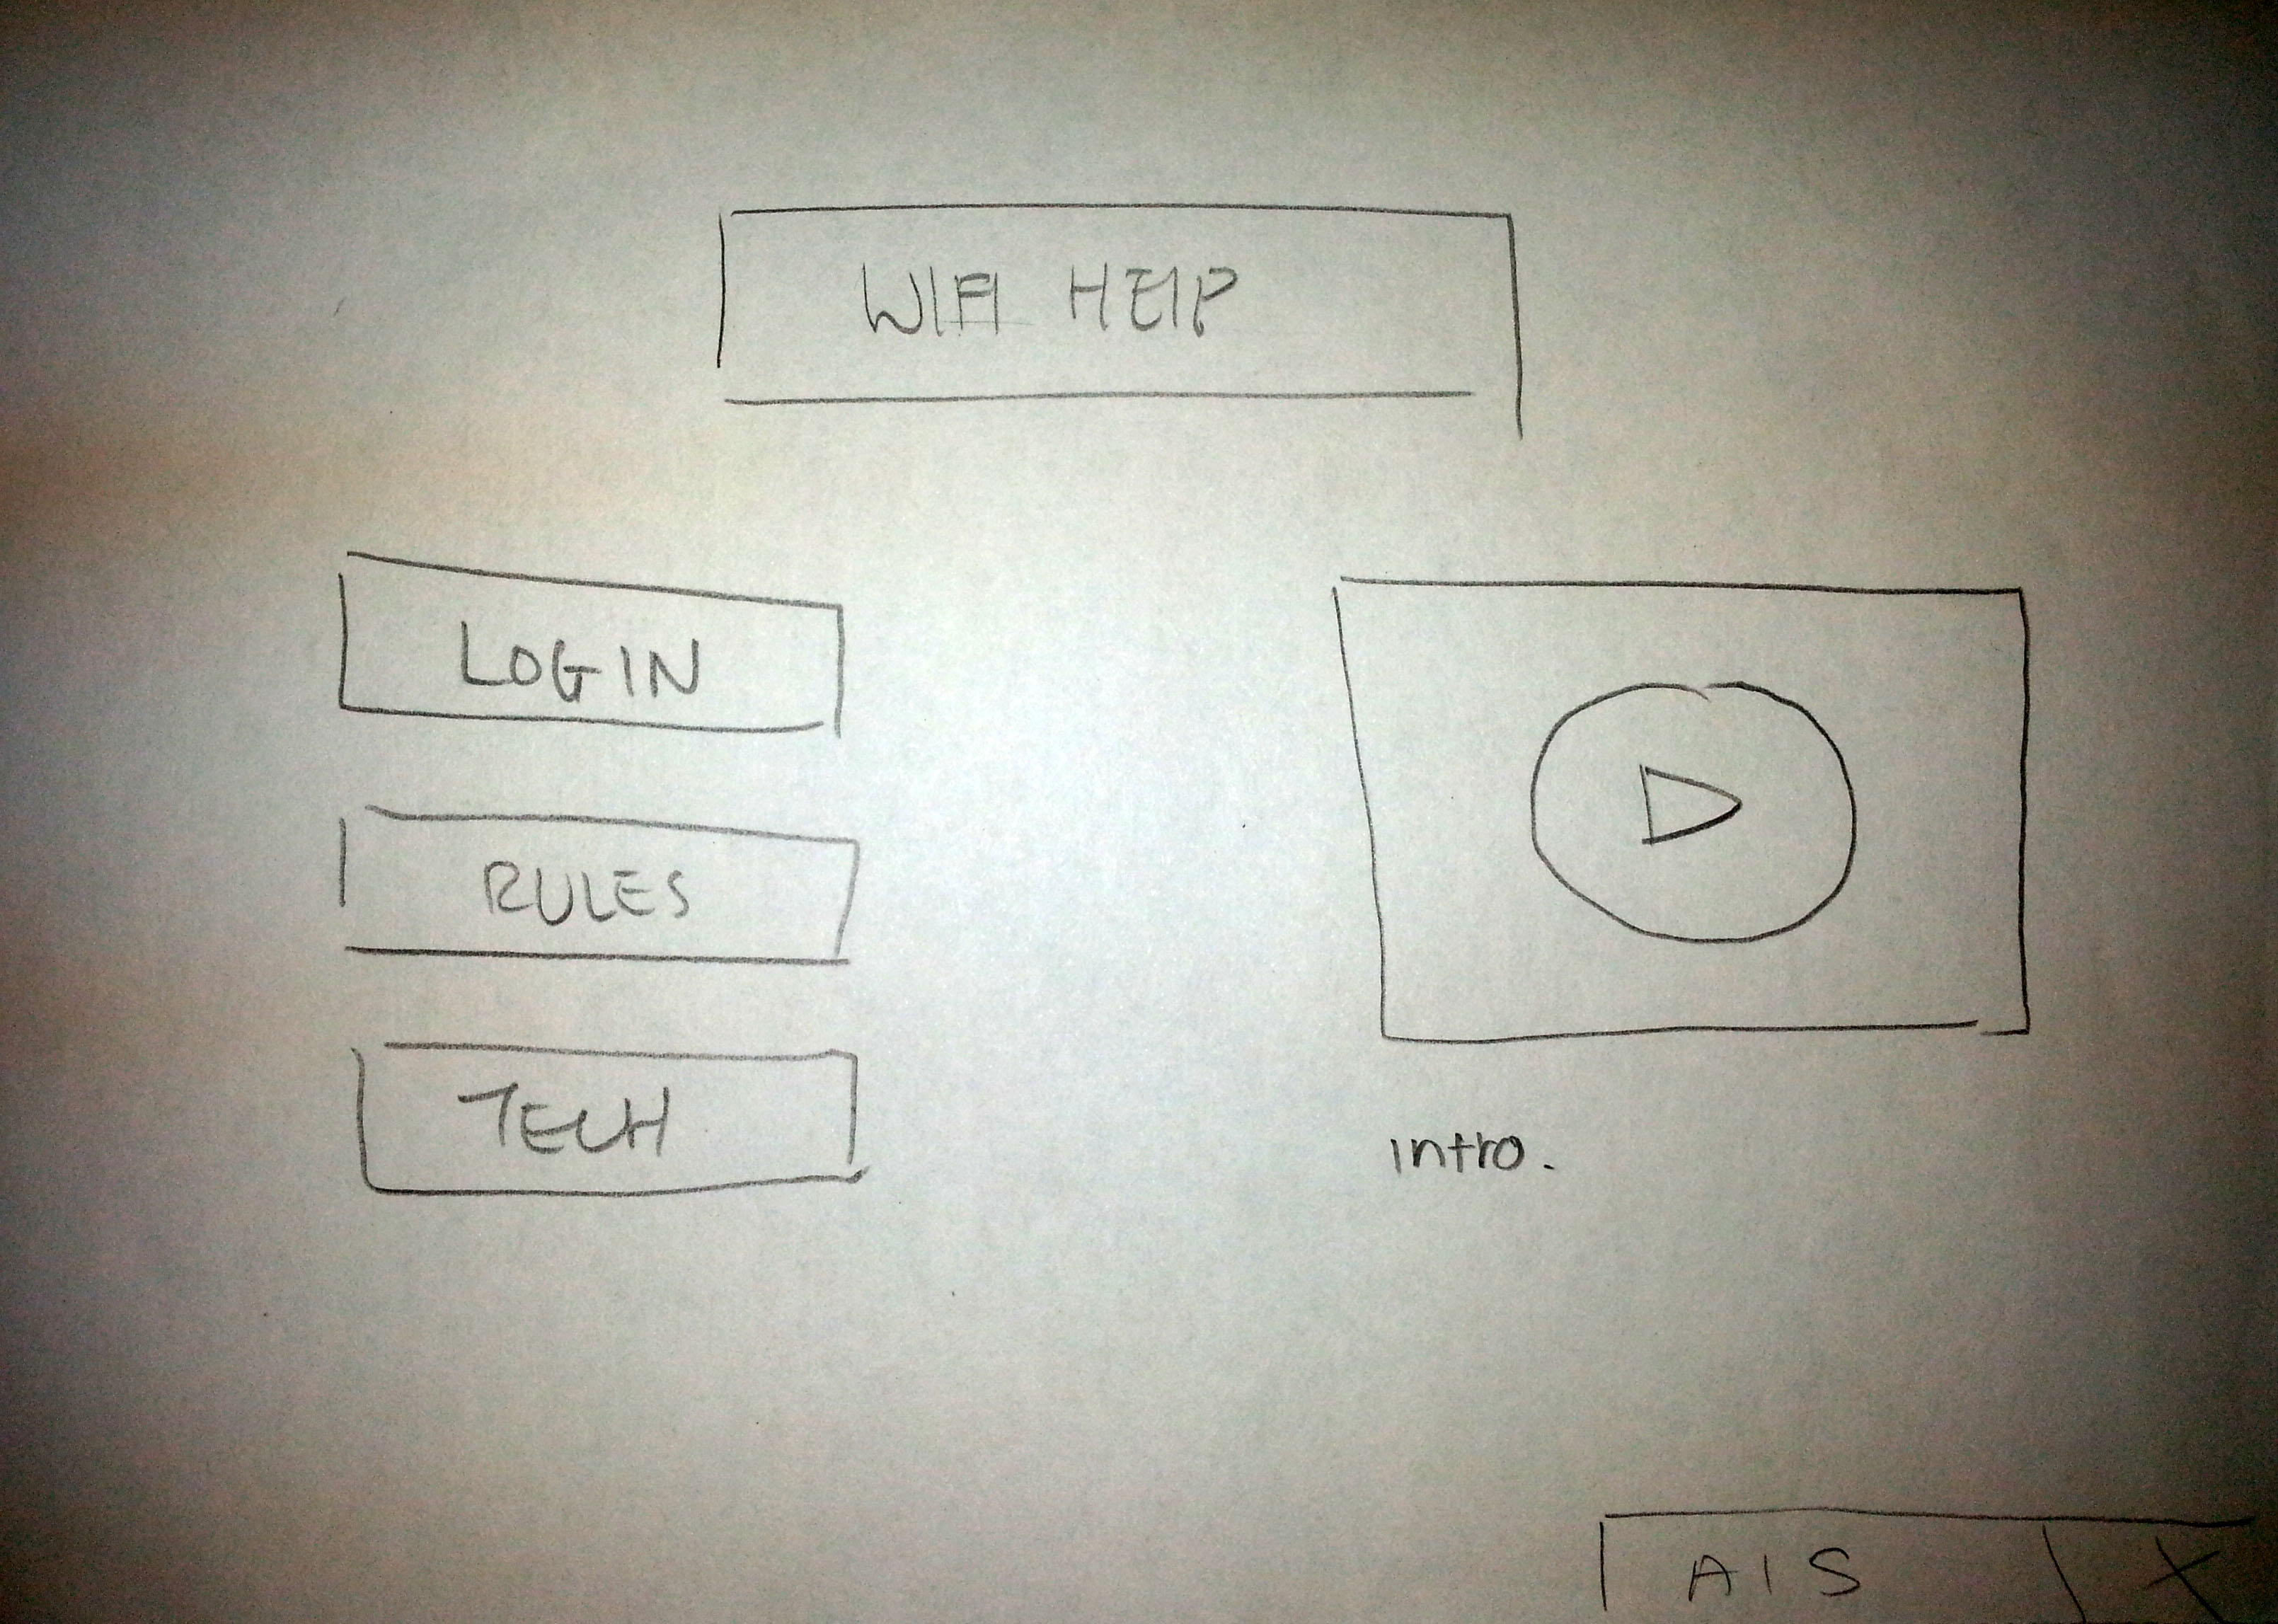 WIFI HElP
LOGIN
RULES
TECH
intro.
AIS X